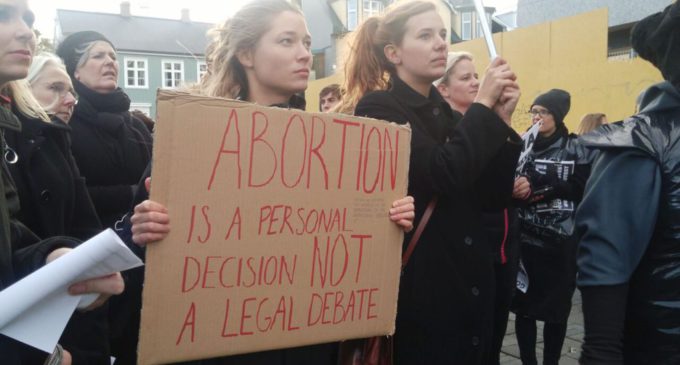 ABORTION
IS A PERSONAL
DECISION NOT
A LEGAL DEBATE